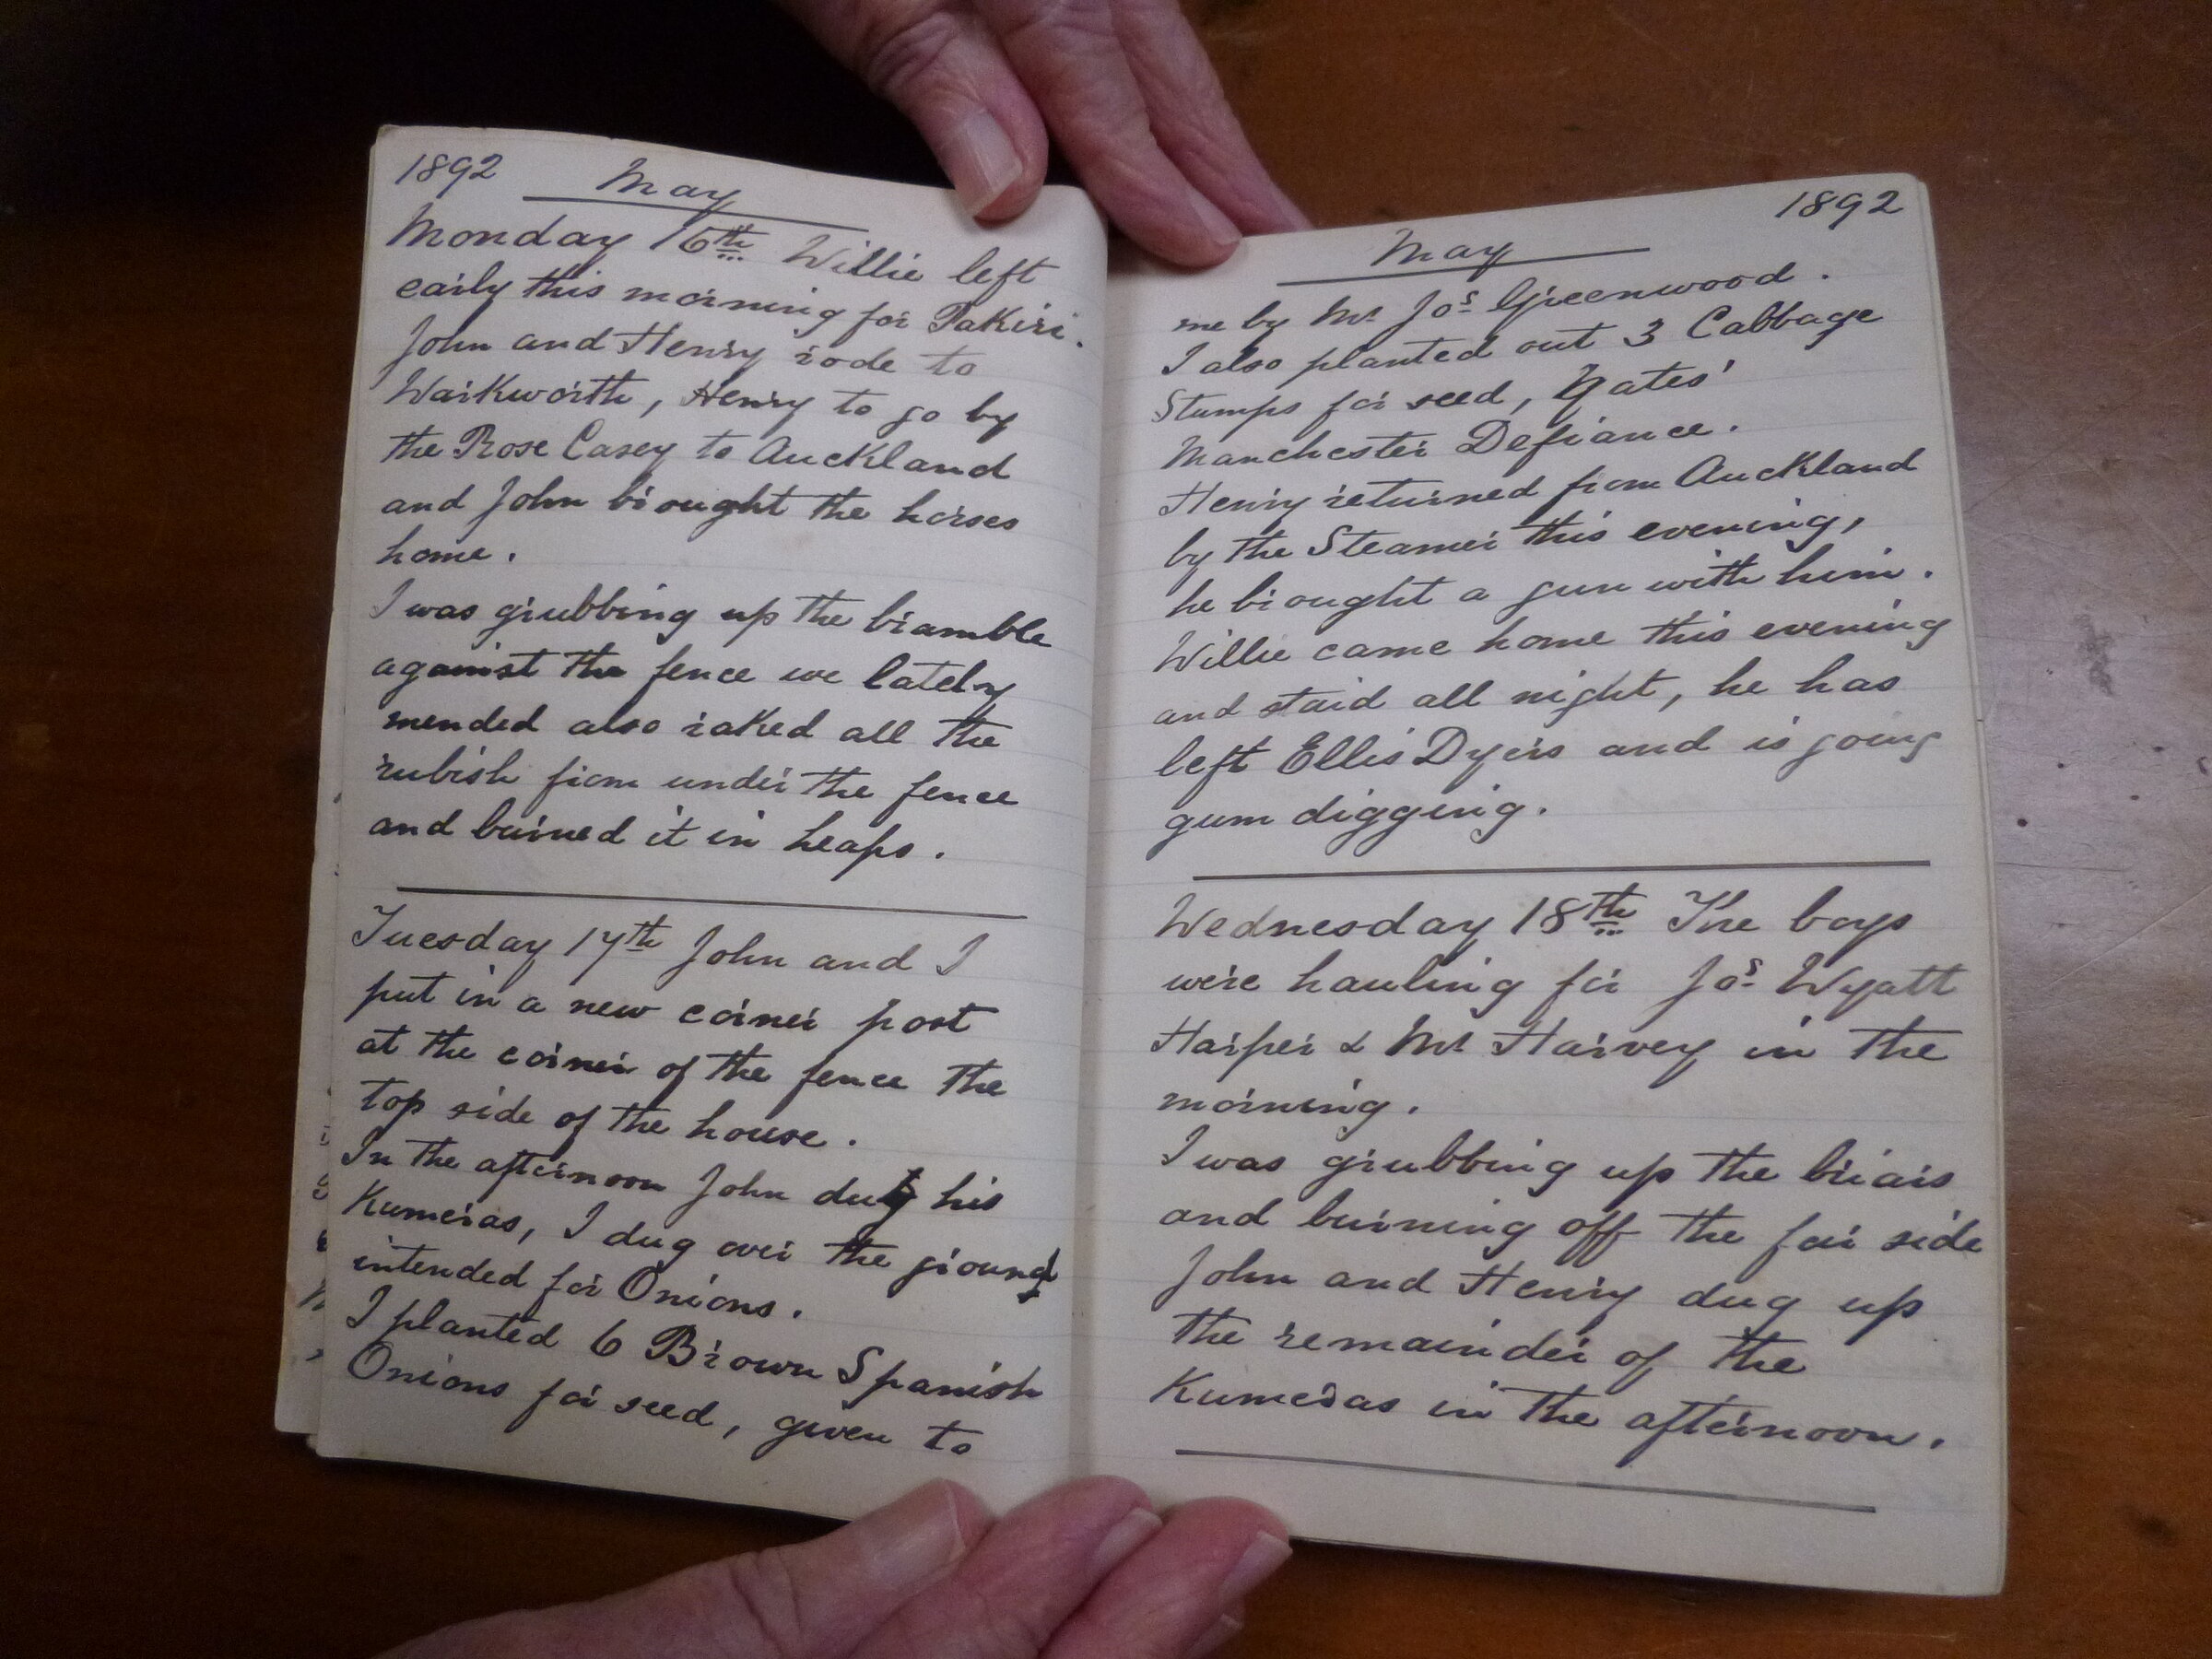 1892 May
Monday 16th Willie left
early this morning for Pakiri.
John and Henry rode to
Warkworth, Henry to go by
the Rose Casey to Auckland
and John brought the horses
home.
I was grubbing up the bramble
against the fence we lately
mended also raked all the
rubish from under the fence
and burned it in heaps.
Tuesday 17th John and I
put in a new corner post
at the corner of the fence the
top side of the house.
In the afternoon John dug his
Kumeras, I dug over the ground
intended for Onions.
I planted 6 Brown Spanish
Onions for seed, given to
1892
May
me by Mr Jos Greenwood.
I also planted out 3 Cabbage
Stumps for seed, Yates'
Manchester Defiance.
Henry returned from Auckland
by the Steamer this evening,
he brought a gun with him.
Willie came home this evening
and staid all night, he has
left Ellis Dyers and is going
gum digging.
Wednesday 18th The boys
were hauling for Jos Wyatt
Harper & Mr Harvey in the
morning.
I was grubbing up the briars
and burning off the far side
John and Henry dug up
the remainder of the
Kumeras in the afternoon.